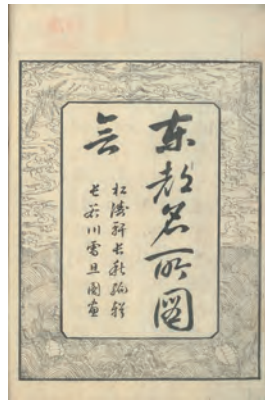 東都名所圖
会
松濤軒長秋編輯
長谷川雪旦圖画